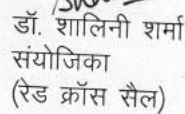 डॉ. शालिनी शर्मा
संयोजिका
(रेड क्रॉस सैल)